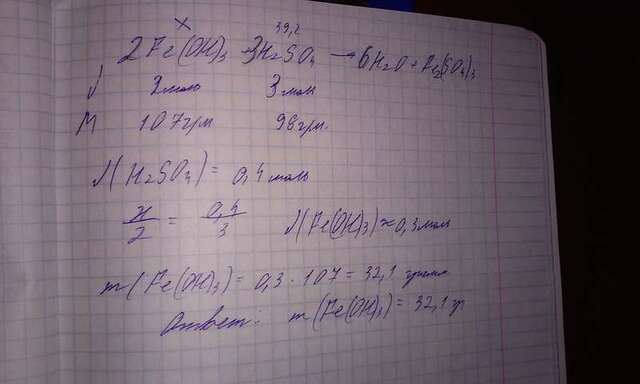 x 39,2
2Fe(OH)3 + 3H2SO4 → 6H2O + Fe2(SO4)3
ν 2моль 3моль
M 107грм 98грм.
ν(H2SO4) = 0,4 моль
x/2 = 0,4/3 ν(Fe(OH)3) ≈ 0,3моль
m(Fe(OH)3) = 0,3 · 107 = 32,1 грамм
Ответ: m(Fe(OH)3) = 32,1 гр